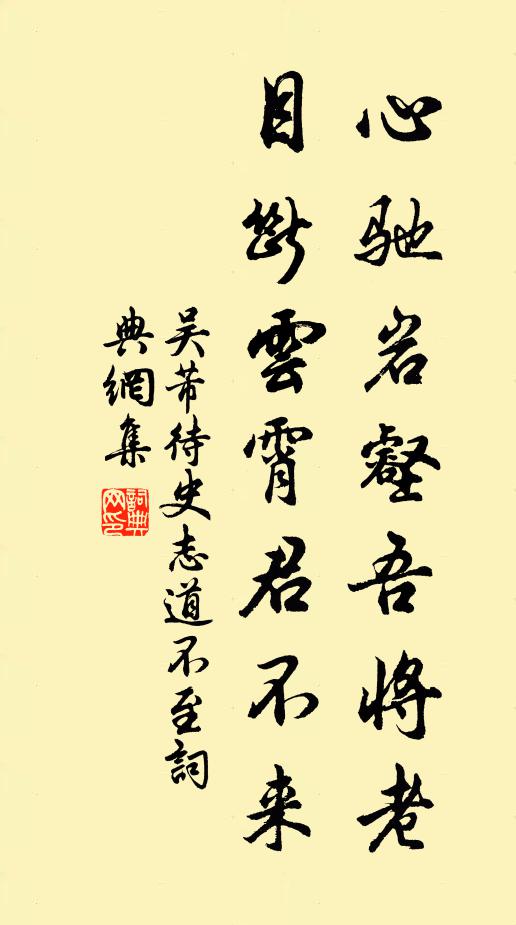 心驰岩壑吾将老
目断雲霄君不来
吴芾待史志道不至詞
典網集
詞典
网印